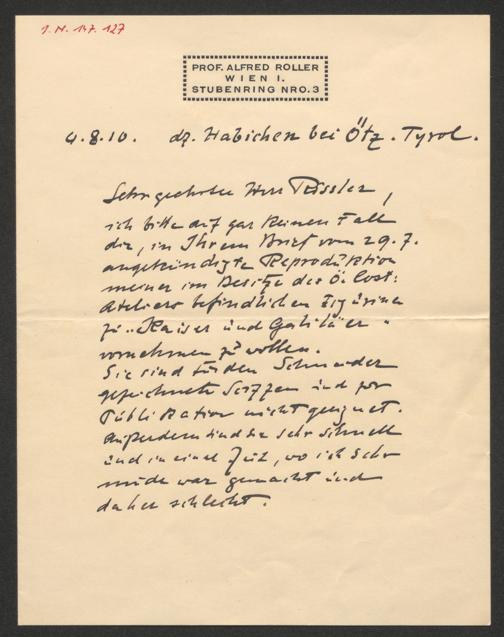 I.N. 147.127
PROF. ALFRED ROLLER
WIEN I.
STUBENRING NRO. 3
4.8.10. dz. Habichen bei Ötz. Tyrol.
Sehr geehrter Herr Rössler,
ich bitte auf gar keinen Fall
die, in Ihrem Brief vom 29.7.
angekündigte Reproduktion
meiner im Besitze des Ö. Cost:
Ateliers befindlichen Figurinen
zu „Kaiser und Galiläer“
vornehmen zu wollen.
Sie sind für den Schneider
gezeichnete Skizzen und zur
Publikation nicht geeignet.
Außerdem sind sie sehr schnell
und in einer Zeit, wo ich sehr
müde war gemacht und
daher schlecht.